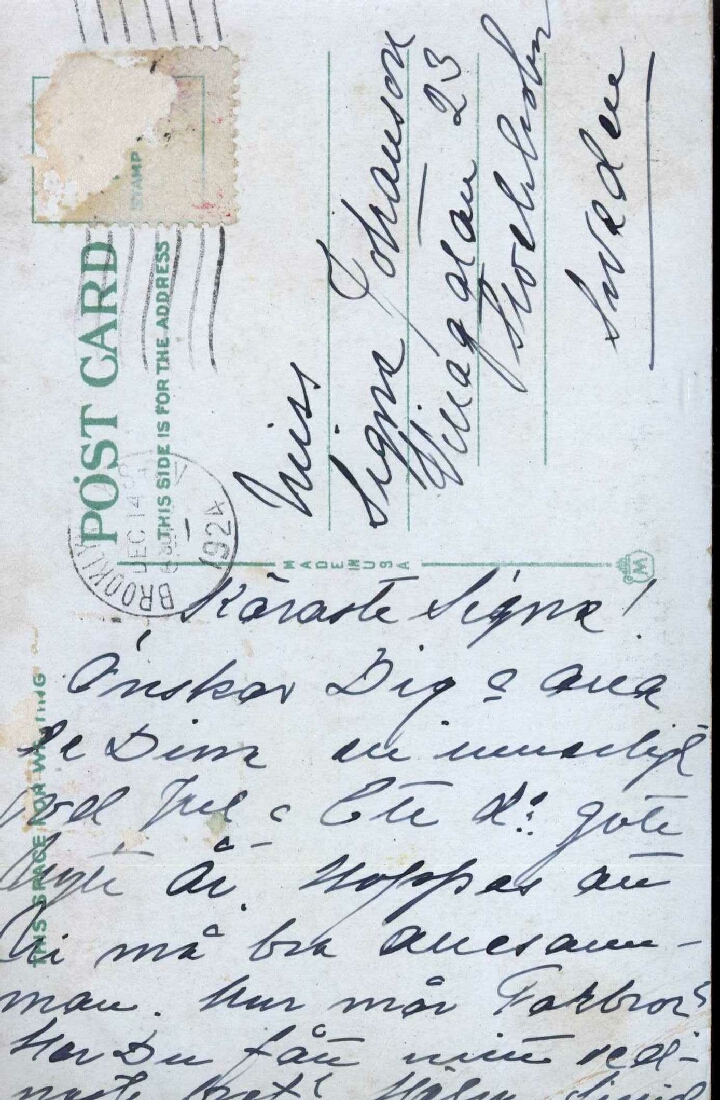 STAMP
POST CARD
THIS SIDE IS FOR THE ADDRESS
BROOKLY
DEC 14
1924
Miss
Signe Johanson
Villagatan 23
Stockholm
Sweden
MADE IN USA
M
THIS SPACE FOR WRITING
Käraste Signe!
Önskar Dig & alla
de Dina en innerligt
god Jul & Ett d: gott
Nytt År. Hoppas att
Ni må bra allesam-
man. Hur mår Farbror?
Har Du fått mitt sed-
naste